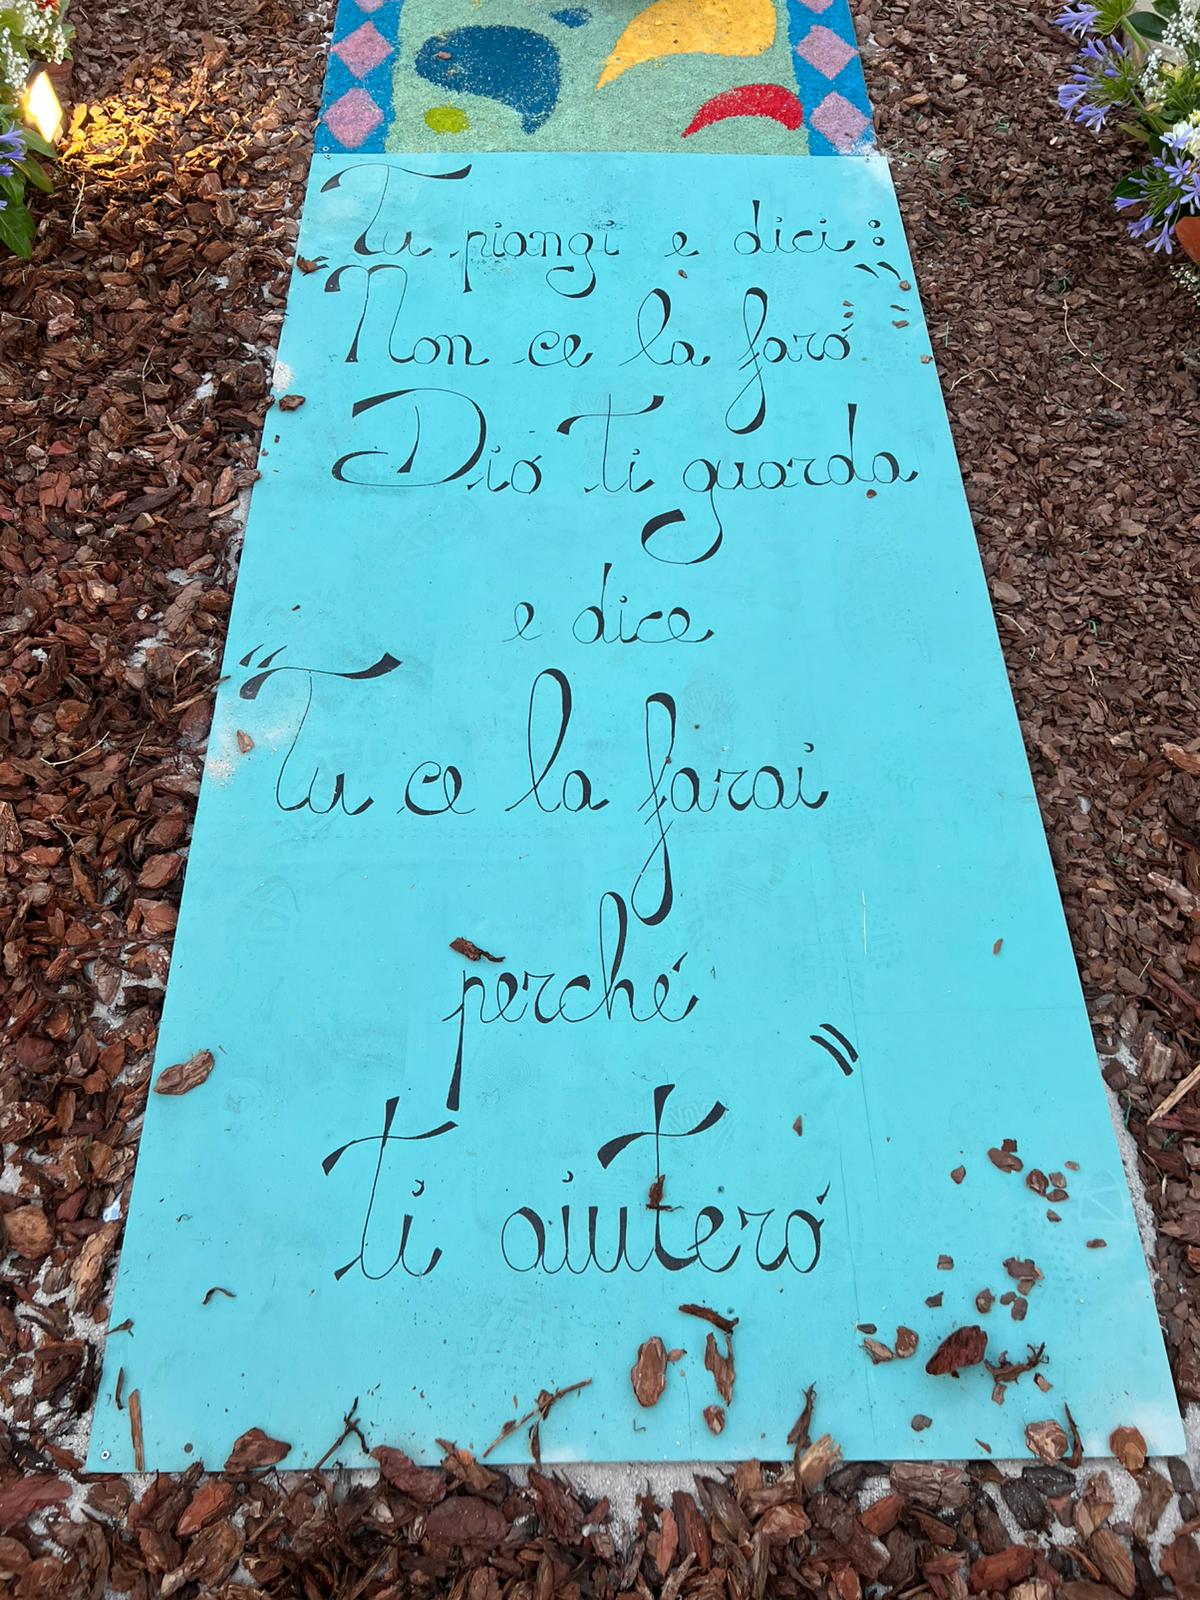 Tu piangi e dici:
"Non ce la faró"
Dio ti guarda
e dice
"Tu ce la farai
perché
ti aiuteró"